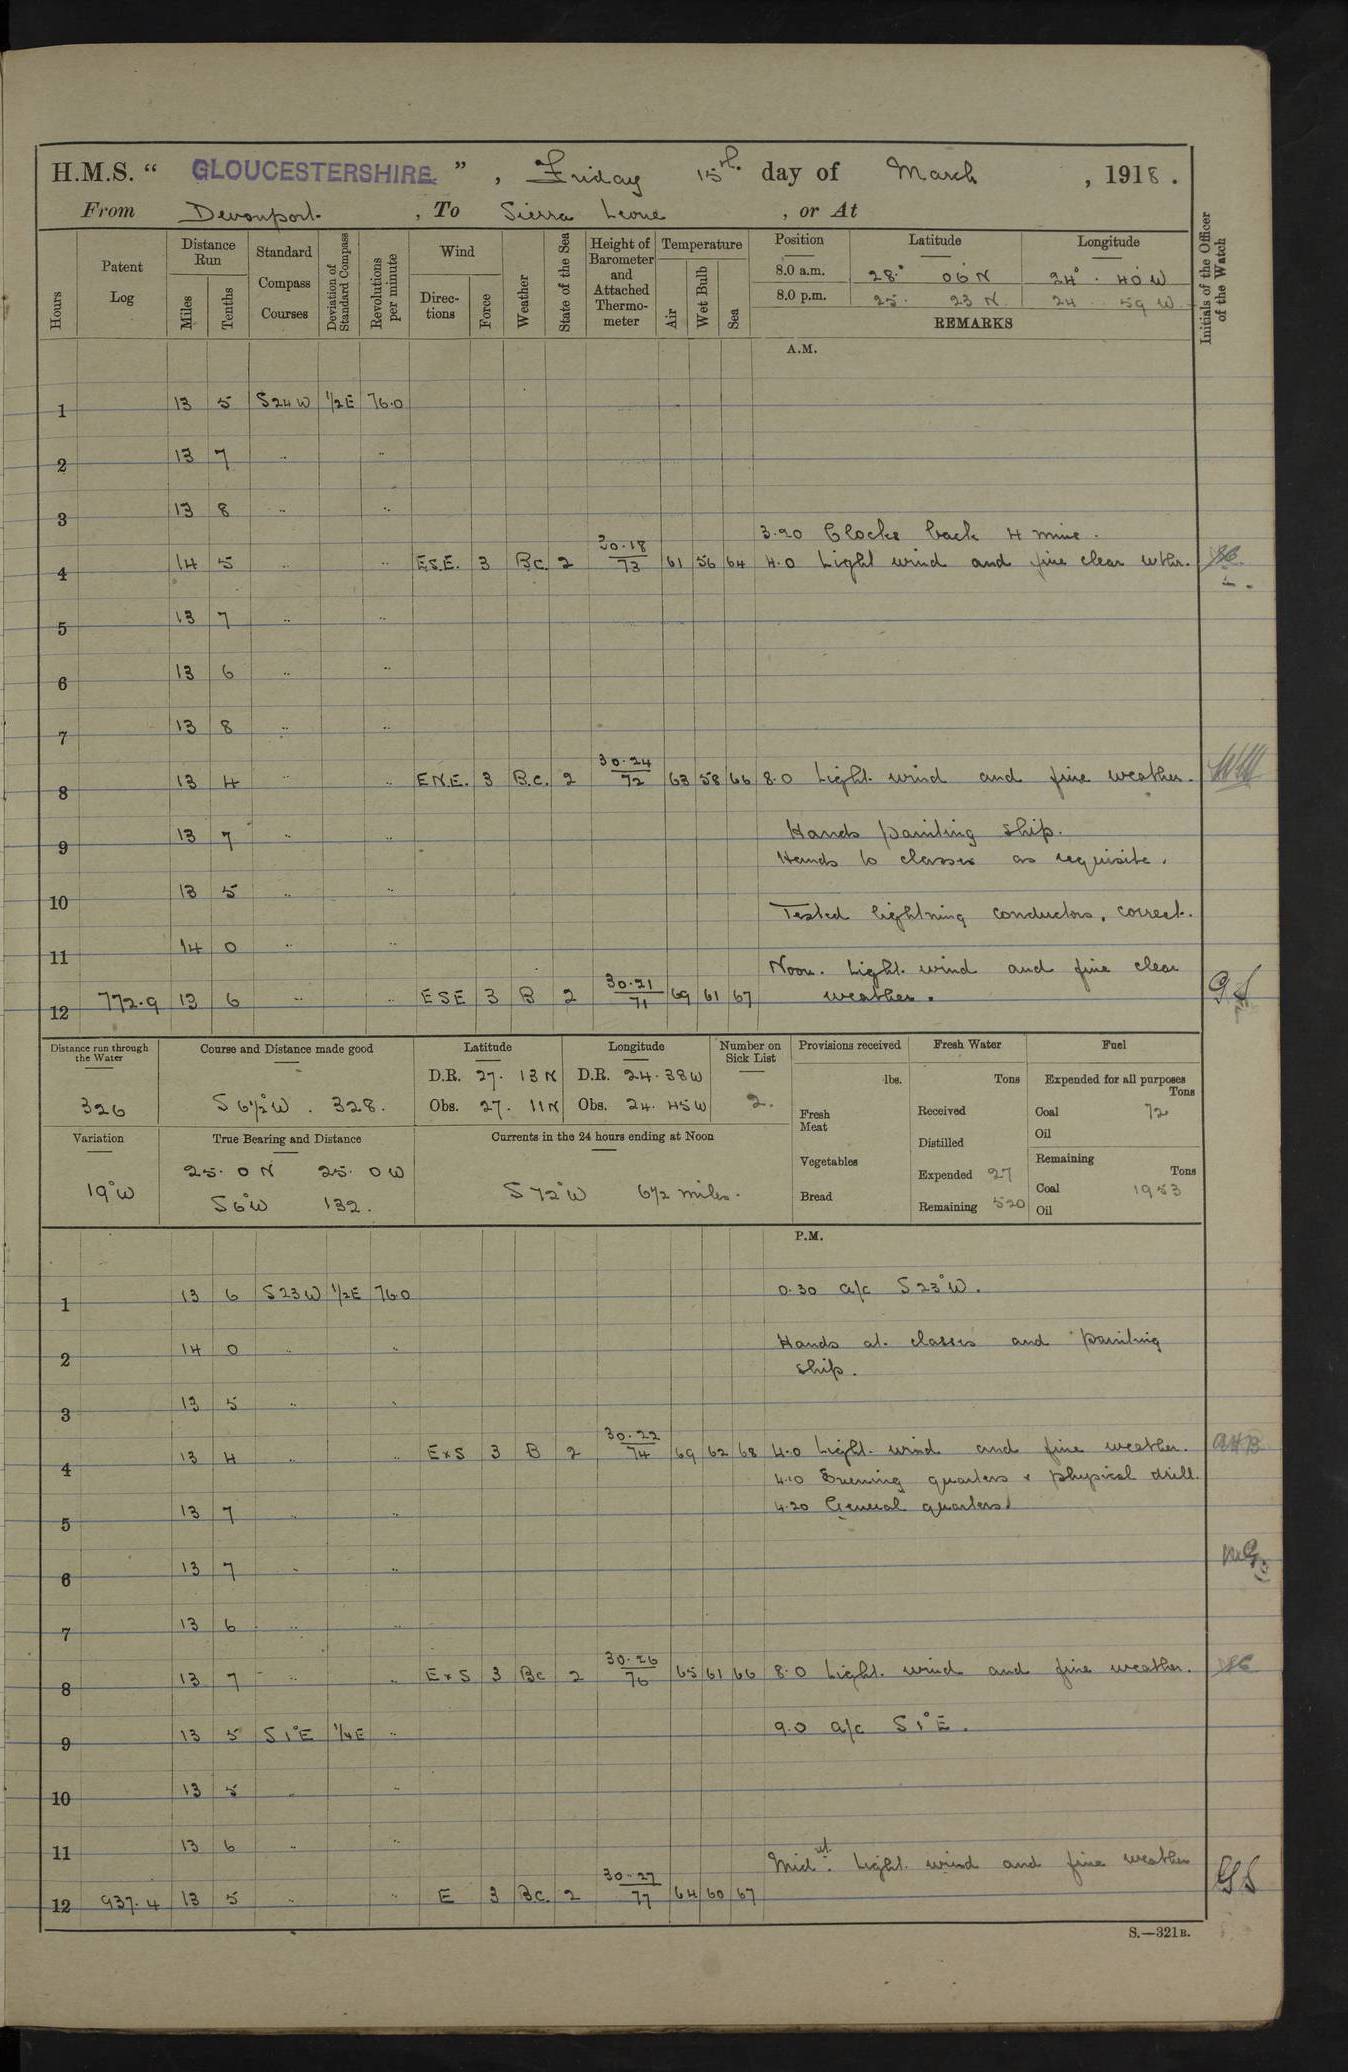 H.M.S. “ GLOUCESTERSHIRE. ” , Friday 15th. day of March , 1918 .
From Devonport. , To Sierra Leone , or At
Hours Patent Log Distance Run Miles Tenths Standard Compass Courses Deviation of Standard Compass Revolutions per minute Wind Direc-tions Force Weather State of the Sea Height of Barometer and Attached Thermo-meter Temperature Air Wet Bulb Sea Position Latitude Longitude Initials of the Officer of the Watch
8.0 a.m. 28° 06' N 24° . 40' W
8.0 p.m. 25. 23 N 24 59 W
REMARKS
A.M.
1 13 5 S24W 1/2E 76.0
2 13 7 .. ..
3 13 8 .. ..
3.20 Clocks back 4 mins.
4 14 5 .. .. E.S.E. 3 B.C. 2 30.18/73 61 56 64 4.0 Light wind and fine clear wthr.
5 13 7 .. ..
6 13 6 .. ..
7 13 8 .. ..
8 13 4 .. .. E.N.E. 3 B.C. 2 30.24/72 63 58 66 8.0 Light. wind and fine weather.
9 13 7 .. .. Hands painting ship.
Hands to classes as requisite.
10 13 5 .. ..
Tested lightning conductors, correct.
11 14 0 .. ..
Noon. Light. wind and fine clear
12 772.9 13 6 .. .. ESE 3 B 2 30.21/71 69 61 67 weather. GS
Distance run through the Water Course and Distance made good Latitude Longitude Number on Sick List Provisions received Fresh Water Fuel
326 S 6½°W . 328. D.R. 27. 13 N D.R. 24.38W 2. lbs. Tons Expended for all purposes Tons
Obs. 27. 11N Obs. 24. 45W Fresh Meat Received Coal 72
Oil
Variation True Bearing and Distance Currents in the 24 hours ending at Noon Distilled
19°W 25. 0 N 25. 0 W Vegetables Expended 27 Remaining Tons
S6°W 132. S 72°W 6½ miles. Bread Remaining 520 Coal 1953
Oil
P.M.
1 13 6 S23W 1/2E 76.0 0.30 a/c S23°W.
2 14 0 .. .. Hands at. classes and painting
ship.
3 13 5 .. ..
4 13 4 .. .. ExS 3 B 2 30.22/74 69 62 68 4.0 Light. wind and fine weather.
4.10 Evening quarters & physical drill.
5 13 7 .. .. 4.20 General quarters.
6 13 7 .. ..
7 13 6 .. ..
8 13 7 .. .. ExS 3 Bc 2 30.26/76 65 61 66 8.0 Light. wind and fine weather.
9 13 5 S1°E 1/4E .. 9.0 a/c S1°E.
10 13 5 .. ..
11 13 6 .. ..
Midt. Light. wind and fine weather
12 937.4 13 5 .. .. E 3 Bc. 2 30.27/77 64 60 67 GS
S.—321B.